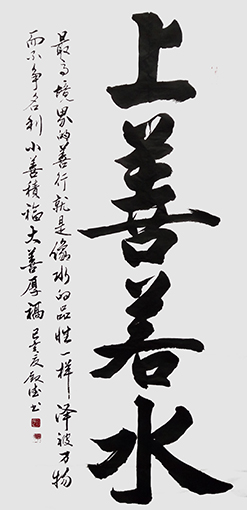 上善若水
最高境界的善行就是像水的品性一样泽被万物
而不争名利小善積福大善厚福己亥书